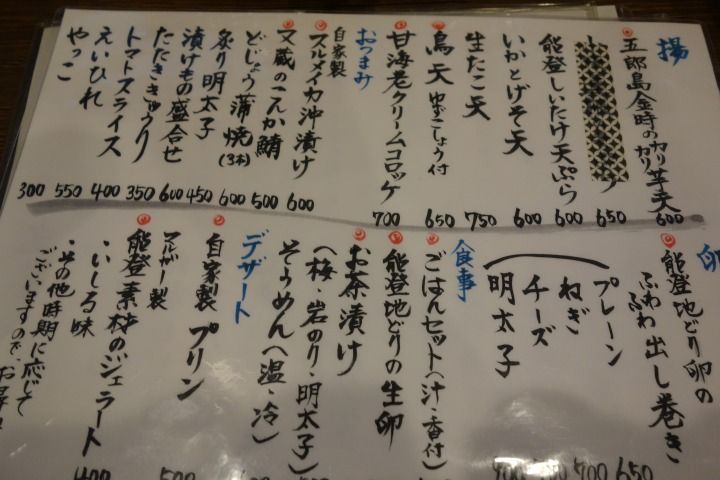 揚
五郎島金時のカリカリ芋天 600
650
能登しいたけ天ぷら 600
いかとげそ天 600
生たこ天 750
鳥天 ゆずこしょう付 650
甘海老クリームコロッケ 700
おつまみ
自家製
スルメイカ沖漬け 600
又蔵のこんか鯖 500
どじょう蒲焼(3本) 600
炙り明太子 450
漬けもの盛合せ 600
たたききゅうり 350
トマトスライス 400
えいひれ 550
やっこ 300
卵
能登地どり卵の
ふわふわ出し巻き
プレーン 650
ねぎ 700
チーズ
明太子
食事
ごはんセット(汁・香付)
能登地どりの生卵
お茶漬け
(梅・岩のり・明太子)
そうめん(温・冷)
デザート
自家製プリン 500
マルガー製
能登素材のジェラート 400
・いしる味
・その他時期に応じて
ございますので、お